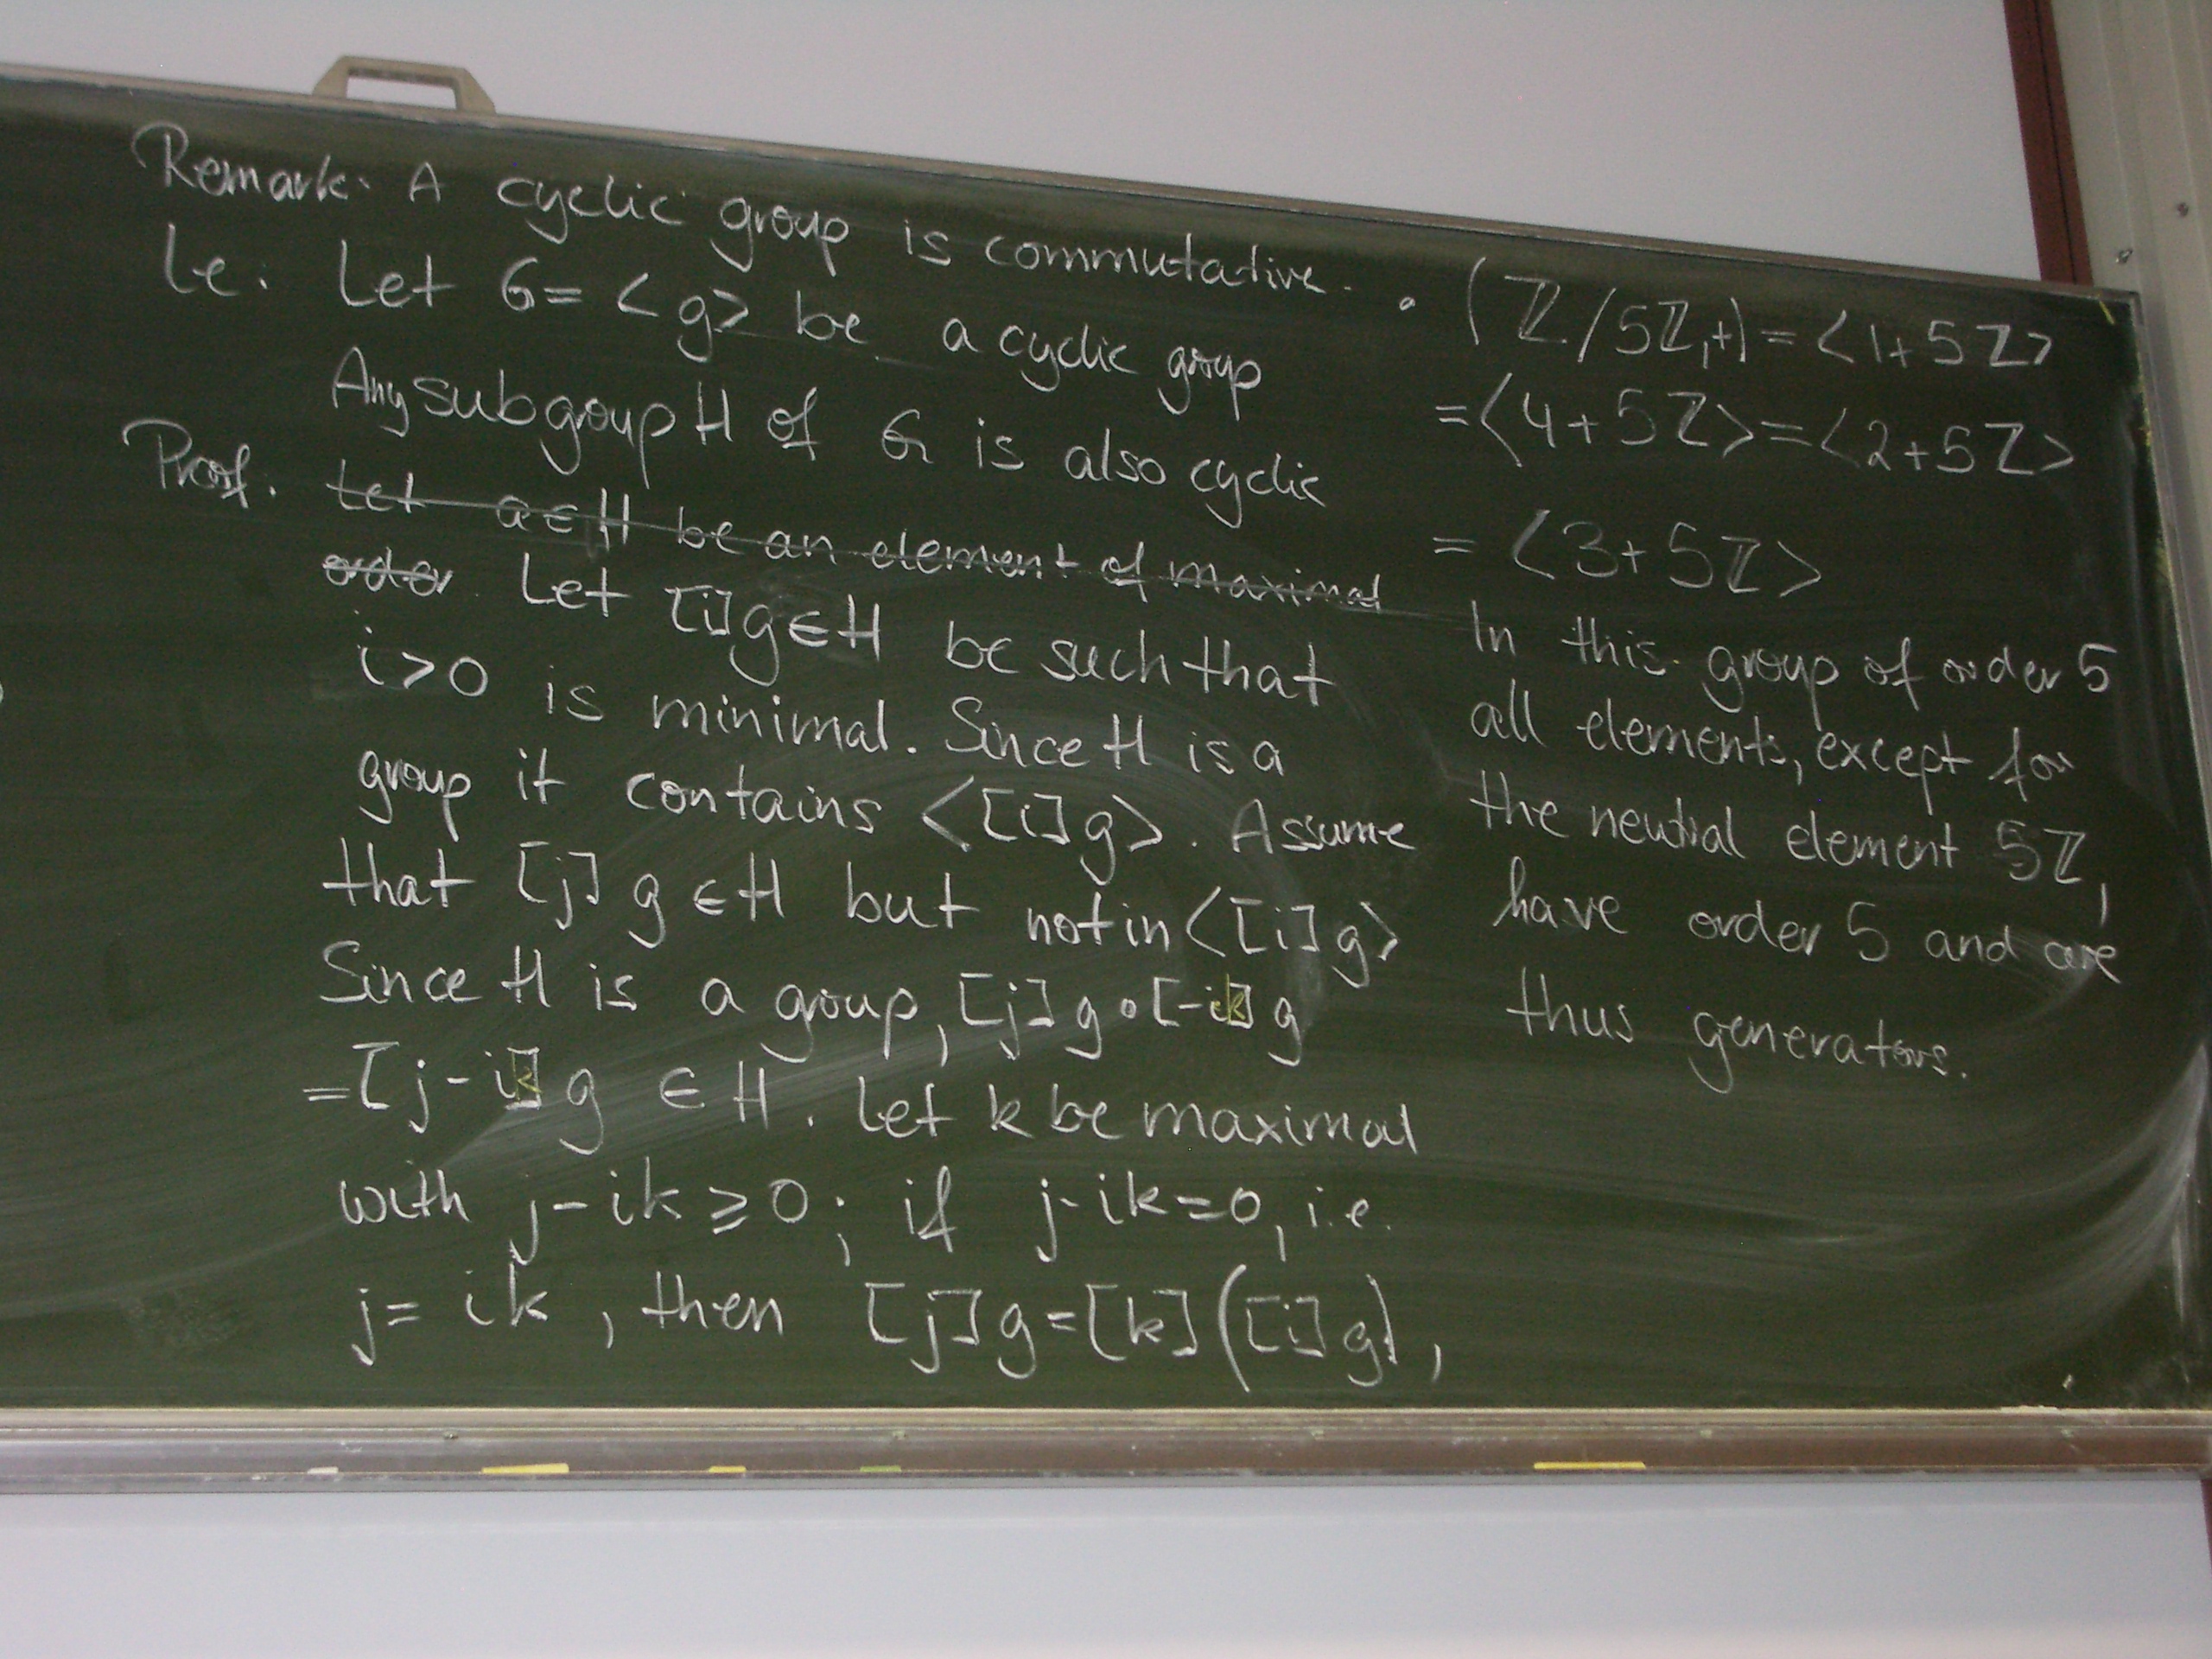 Remark: A cyclic group is commutative.
Le: Let G = <g> be a cyclic group
Any subgroup H of G is also cyclic
Proof. Let a∈H be an element of maximal
order Let [i]g∈H be such that
i>0 is minimal. Since H is a
group it contains <[i]g>. Assume
that [j]g∈H but not in <[i]g>
Since H is a group, [j]g∘[-ik]g
=[j-ik]g ∈ H. Let k be maximal
with j-ik≥0; if j-ik=0, i.e.
j=ik, then [j]g=[k]([i]g),
• (ℤ/5ℤ,+)=<1+5ℤ>
=<4+5ℤ>=<2+5ℤ>
=<3+5ℤ>
In this group of order 5
all elements, except for
the neutral element 5ℤ,
have order 5 and are
thus generators.